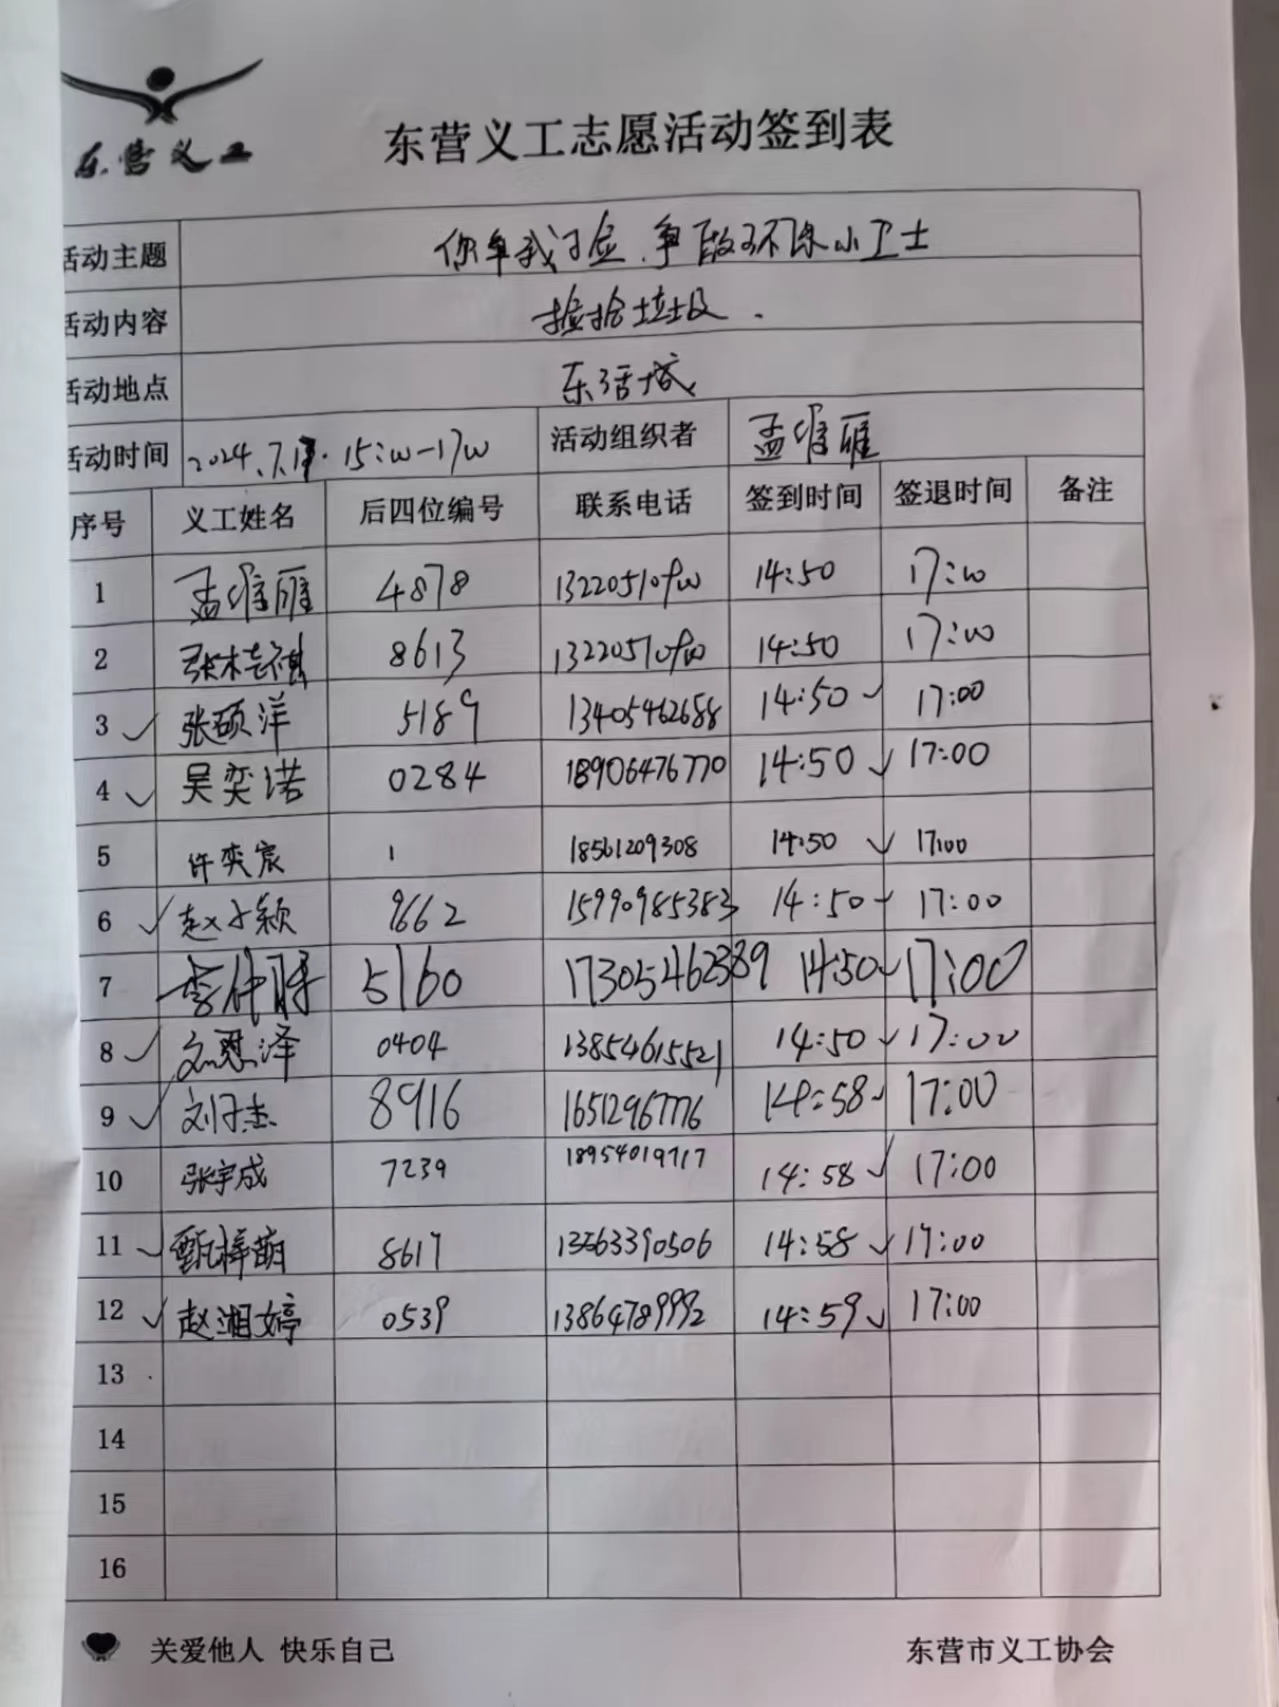 东营义工
东营义工志愿活动签到表
活动主题 你争我捡,争做环保小卫士
活动内容 捡拾垃圾.
活动地点 东活城
活动时间 2024.7. 15:00-17:00 活动组织者 孟 雁
序号 义工姓名 后四位编号 联系电话 签到时间 签退时间 备注
1 孟 雁 4878 14:50 17:00
2 张 祺 8613 14:50 17:00
3 张硕洋 5189 13405462688 14:50 17:00
4 吴奕诺 0284 18906476770 14:50 17:00
5 许奕宸 1 18561209308 14:50 17:00
6 赵子颖 9662 15990985383 14:50 17:00
7 李仲 5160 17305462389 14:50 17:00
8 泽 0404 13854615521 14:50 17:00
9 刘子杰 8916 16512967776 14:58 17:00
10 张宇成 7239 18954019717 14:58 17:00
11 甄梓萌 8617 13563390506 14:58 17:00
12 赵湘婷 0539 13864789992 14:59 17:00
13
14
15
16
关爱他人 快乐自己 东营市义工协会